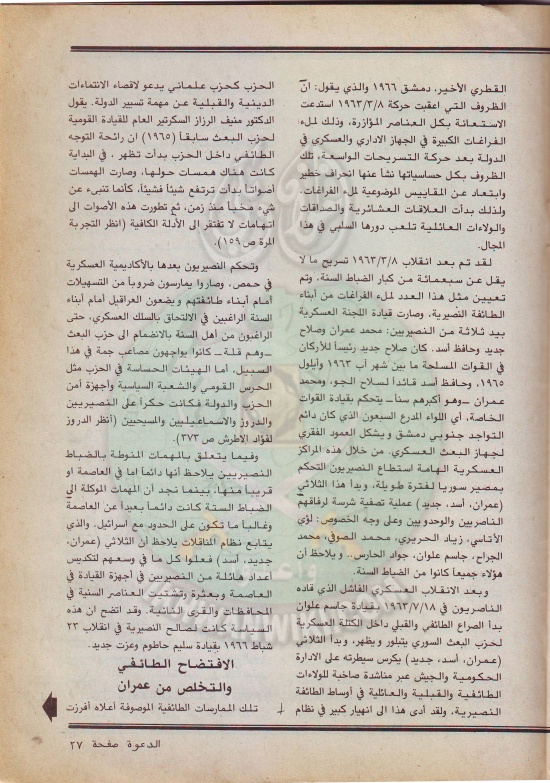 القطري الأخير، دمشق ١٩٦٦ والذي يقول: ان
الظروف التي اعقبت حركة ١٩٦٣/٣/٨ استدعت
الاستعانة بكل العناصر المؤازرة، وذلك لملء
الفراغات الكبيرة في الجهاز الاداري والعسكري في
الدولة بعد حركة التسريحات الواسعة، تلك
الظروف بكل حساسياتها نشأ عنها انحراف خطير
وابتعاد عن المقاييس الموضوعية لملء الفراغات.
ولذلك بدأت العلاقات العشائرية والصداقات
والولاءات العائلية تلعب دورها السلبي في هذا
المجال.
لقد تم بعد انقلاب ١٩٦٣/٣/٨ تسريح ما لا
يقل عن سبعمائة من كبار الضباط السنة، وتم
تعيين مثل هذا العدد لملء الفراغات من أبناء
الطائفة النصيرية، وصارت قيادة اللجنة العسكرية
بيد ثلاثة من النصيريين: محمد عمران وصلاح
جديد وحافظ أسد. كان صلاح جديد رئيساً للأركان
في القوات المسلحة ما بين شهر آب ١٩٦٣ وأيلول
١٩٦٥، وحافظ أسد قائداً لسلاح الجو، ومحمد
عمران ــ وهو أكبرهم سناً ــ يتحكم بقيادة القوات
الخاصة، أي اللواء المدرع السبعون الذي كان دائم
التواجد جنوبي دمشق ويشكل العمود الفقري
لجهاز البعث العسكري. من خلال هذه المراكز
العسكرية الهامة استطاع النصيريون التحكم
بمصير سوريا لفترة طويلة، وبدأ هذا الثلاثي
(عمران، أسد، جديد) عملية تصفية شرسة لرفاقهم
الناصريين والوحدويين وعلى وجه الخصوص: لؤي
الأتاسي، زياد الحريري، محمد الصوفي، محمد
الجراح، جاسم علوان، جواد الحارس.. ويلاحظ أن
هؤلاء جميعاً كانوا من الضباط السنة.
وبعد الانقلاب العسكري الفاشل الذي قاده
الناصريون في ١٩٦٣/٧/١٨ بقيادة جاسم علوان
بدأ الصراع الطائفي والقبلي داخل الكتلة العسكرية
لحزب البعث السوري يتبلور ويظهر، وبدأ الثلاثي
(عمران، أسد، جديد) يكرس سيطرته على الادارة
الحكومية والجيش عبر مناشدة صاخبة للولاءات
الطائفية والقبلية والعائلية في أوساط الطائفة
النصيرية، ولقد أدى هذا الى انهيار كبير في نظام
الحزب كحزب علماني يدعو لاقصاء الانتماءات
الدينية والقبلية عن مهمة تسيير الدولة. يقول
الدكتور منيف الرزاز السكرتير العام للقيادة القومية
لحزب البعث سابقاً (١٩٦٥) ان رائحة التوجه
الطائفي داخل الحزب بدأت تظهر، في البداية
كانت هناك همسات حولها، وصارت الهمسات
أصواتاً بدأت ترتفع شيئاً فشيئاً، كأنما تنبىء عن
شيء مخبأ منذ زمن، ثم تطورت هذه الأصوات الى
اتهامات لا تفتقر الى الأدلة الكافية (انظر التجربة
المرة ص ١٥٩).
وتحكم النصيريون بعدها بالأكاديمية العسكرية
في حمص، وصاروا يمارسون ضروباً من التسهيلات
أمام أبناء طائفتهم ويضعون العراقيل أمام أبناء
السنة الراغبين في الالتحاق بالسلك العسكري، حتى
الراغبون من أهل السنة بالانضمام الى حزب البعث
ــ وهم قلة ــ كانوا يواجهون مصاعب جمة في هذا
السبيل. أما الهيئات الحساسة في الحزب مثل
الحرس القومي والشعبة السياسية وأجهزة أمن
الحزب والدولة فكانت حكراً على النصيريين
والدروز والاسماعيليين والمسيحيين (أنظر الدروز
لفؤاد الاطرش ص ٣٧٣).
وفيما يتعلق بالمهمات المنوطة بالضباط
النصيريين يلاحظ أنها دائماً اما في العاصمة او
قريباً منها، بينما نجد أن المهمات الموكلة الى
الضباط السنة كانت دائماً بعيداً عن العاصمة
وغالباً ما تكون على الحدود مع اسرائيل. والذي
يتابع نظام الناقلات يلاحظ أن الثلاثي (عمران،
جديد، أسد) فعلوا كل ما في وسعهم لتكديس
أعداد هائلة من النصيريين في أجهزة القيادة في
العاصمة وبعثرة وتشتيت العناصر السنية في
المحافظات والقرى النائية. وقد اتضح ان هذه
السياسة كانت لصالح النصيرية في انقلاب ٢٣
شباط ١٩٦٦ بقيادة سليم حاطوم وعزت جديد.
الافتضاح الطائفي
والتخلص من عمران
تلك الممارسات الطائفية الموصوفة أعلاه أفرزت
الدعوة صفحة ٢٧